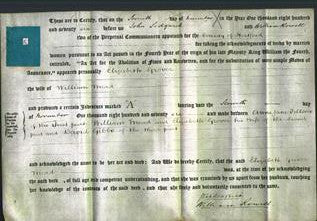 These are to Certify, that on the Seventh day of November in the Year One thousand eight hundred
and seventy before us John Sidgard and William Howell
two of the Perpetual Commissioners appointed for the County of
for taking the acknowledgments of deeds by married
women, pursuant to an Act passed in the Fourth Year of the reign of his late Majesty King William the Fourth,
entituled, "An Act for the Abolition of Fines and Recoveries, and for the substitution of more simple Modes of
Assurance," appeared personally Elizabeth Grover
the wife of William Mead
and produced a certain Indenture marked A bearing date the Seventh day
of November One thousand eight hundred and made between
of the first part William Mead and Elizabeth Grover his wife of the second
part and Gibbs of the third part
and acknowledged the same to be her act and deed: And We do hereby Certify, that the said Elizabeth Grover
Mead was, at the time of her acknowledging
the said deed, of full age and competent understanding, and that she was examined by us apart from her husband, touching
her knowledge of the contents of the said deed, and that she freely and voluntarily consented to the same.
William Howell